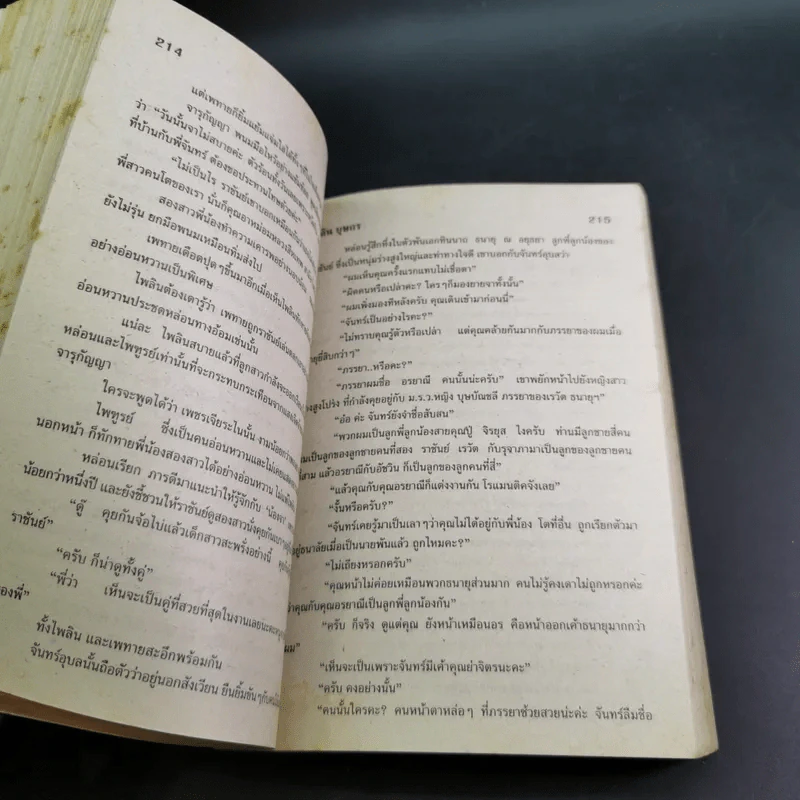 214
แต่เพทายก็ยิ้มแย้มแจ่มใสได้
จารุกัญญา พนมมือไหว้อย่าง
ว่า “วันนั้นจาไม่สบายค่ะ ตัวร้อนทั้งวันเลย
ที่บ้านกับพี่จันทร์ ต้องขอประทานโทษด้วยค่ะ”
“ไม่เป็นไร ราชันย์เขาบอกเหมือนกัน
พี่สาวคนโตของเรา นั่นก็คุณอาหม่อมหลวง
สองสาวพี่น้องทำความเคารพอย่าง
ยังไม่รุ่น ยกมือพนมเหมือนทิ่มส่งไป
เพทายเดือดปุดๆขึ้นมาอีกเมื่อเห็นไพลิน
อย่างอ่อนหวานเป็นพิเศษ
ไพลินต้องเดารู้ว่า เพทายถูกราชันย์เล่น
อ่อนหวานประชดหล่อนทางอ้อมเช่นนั้น
แน่ละ ไพลินสบายแล้วที่ลูกสาวกำลังจะออก
หล่อนและไพฑูรย์เท่านั้นที่จะกระทบกระเทือนจาก
จารุกัญญา
ใครจะพูดได้ว่า เพชรเจียระไนนั้น งามน้อยกว่า
ไพฑูรย์ ซึ่งเป็นคนอ่อนหวานและไม่เคย
นอกหน้า ก็ทักทายพี่น้องสองสาวได้อย่างอ่อนหวาน
หล่อนเรียก ภารดีมาแนะนำให้รู้จักกับ ‘น้องจา’
น้อยกว่าหนึ่งปี และยังชี้ชวนให้ราชันย์ดูสองสาวนั่งคุยกัน
“ดู๊ คุยกันจ้อไปแล้วเด็กสาวสะพรั่งอย่างนี้
ราชันย์”
“ครับ ก็น่าดูทั้งคู่”
“พี่ว่า เห็นจะเป็นคู่ที่สวยที่สุดในงานเลยนะ
ของพี่”
ทั้งไพลิน และเพทายสะอึกพร้อมกัน
จันทร์อุบลนั้นถือตัวว่าอยู่นอกสังเวียน ยืนยิ้มขันๆกับ
ลิน บุษกร
215
หล่อนรู้สึกทึ่งในตัวพันเอกทินนาถ ธนายุ ณ อยุธยา ลูกพี่ลูกน้องของ
ราชันย์ ซึ่งเป็นหนุ่มร่างสูงใหญ่และท่าทางใจดี เขาบอกกับจันทร์อุบลว่า
“ผมเห็นคุณครั้งแรกแทบไม่เชื่อตา”
“ผิดคนหรือเปล่าคะ? ใครๆก็มองยายจาทั้งนั้น”
“ผมเพิ่งมองทีหลังครับ คุณเดินเข้ามาก่อนนี่”
“จันทร์เป็นอย่างไรคะ?”
“ไม่ทราบคุณรู้ตัวหรือเปล่า แต่คุณคล้ายกันมากกับภรรยาของผมเมื่อ
อายุยี่สิบกว่าๆ”
“ภรรยา..หรือคะ?”
“ภรรยาผมชื่อ อรยาณี คนนั้นน่ะครับ” เขาพยักหน้าไปยังหญิงสาว
ร่างสูงโปร่ง ที่กำลังคุยอยู่กับ ม.ร.ว.หญิง บุษบัณชลี ภรรยาของเรวัต ธนายุฯ
“อ๋อ ค่ะ จันทร์ยังจำชื่อสับสน”
“พวกผมเป็นลูกพี่ลูกน้องสายคุณปู่ จิรยุส ไงครับ ท่านมีลูกชายสี่คน
ผมเป็นลูกของลูกชายคนที่สอง ราชันย์ เรวัต กับรุจาภามาเป็นลูกของลูกชายคน
ที่สาม แล้วอรยาณีกับอัชวิน ก็เป็นลูกของลูกคนที่สี่”
“แล้วคุณกับคุณอรยาณีก็แต่งงานกัน โรแมนติคจังเลย”
“งั้นหรือครับ?”
“จันทร์เคยรู้มาเป็นเลาๆว่าคุณไม่ได้อยู่กับพี่น้อง โตที่อื่น ถูกเรียกตัวมา
อยู่ธนาลัยเมื่อเป็นนายพันแล้ว ถูกไหมคะ?”
“ไม่เถียงหรอกครับ”
“คุณหน้าไม่ค่อยเหมือนพวกธนายุส่วนมาก คนไม่รู้คงเดาไม่ถูกหรอกค่ะ
ว่าคุณกับคุณอรยาณีเป็นลูกพี่ลูกน้องกัน”
“ครับ ก็จริง ดูแต่คุณ ยังหน้าเหมือนอร คือหน้าออกเค้าธนายุมากกว่า
ผม”
“เห็นจะเป็นเพราะจันทร์มีเค้าคุณย่าจิตรนะคะ”
“ครับ คงอย่างนั้น”
“คนนั้นใครคะ? คนหน้าตาหล่อๆ ที่ภรรยาช้วยสวยน่ะค่ะ จันทร์ลืมชื่อ